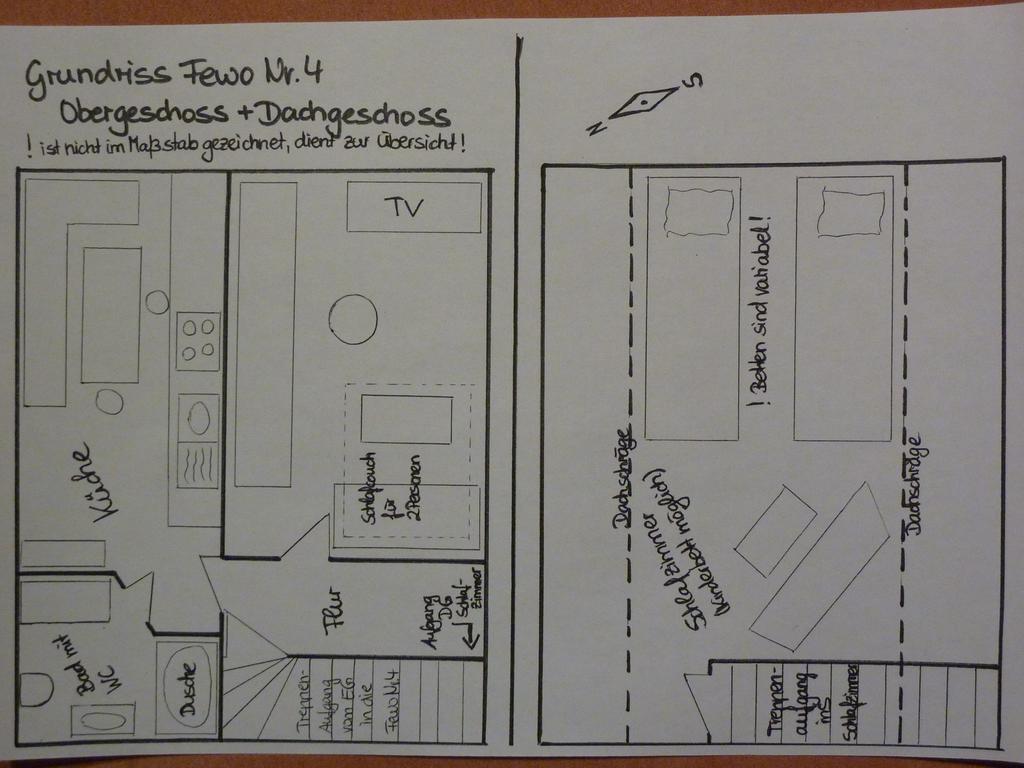 Grundriss Fewo Nr. 4
Obergeschoss + Dachgeschoss
! ist nicht im Maßstab gezeichnet, dient zur Übersicht!
N
S
TV
Küche
Schlafcouch
für
2 Personen
Flur
Aufgang
DG
Schlaf-
zimmer
Bad mit
WC
Dusche
Treppen-
Aufgang
von EG
in die
Fewo Nr. 4
! Betten sind variabel!
Dachschräge
Dachschräge
Schlafzimmer
(Kinderbett möglich)
Treppen-
aufgang
ins
Schlafzimmer